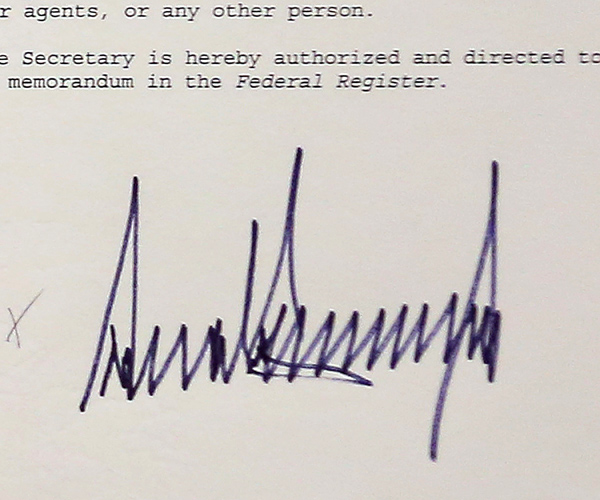 r agents, or any other person.
e Secretary is hereby authorized and directed to
memorandum in the Federal Register.
X